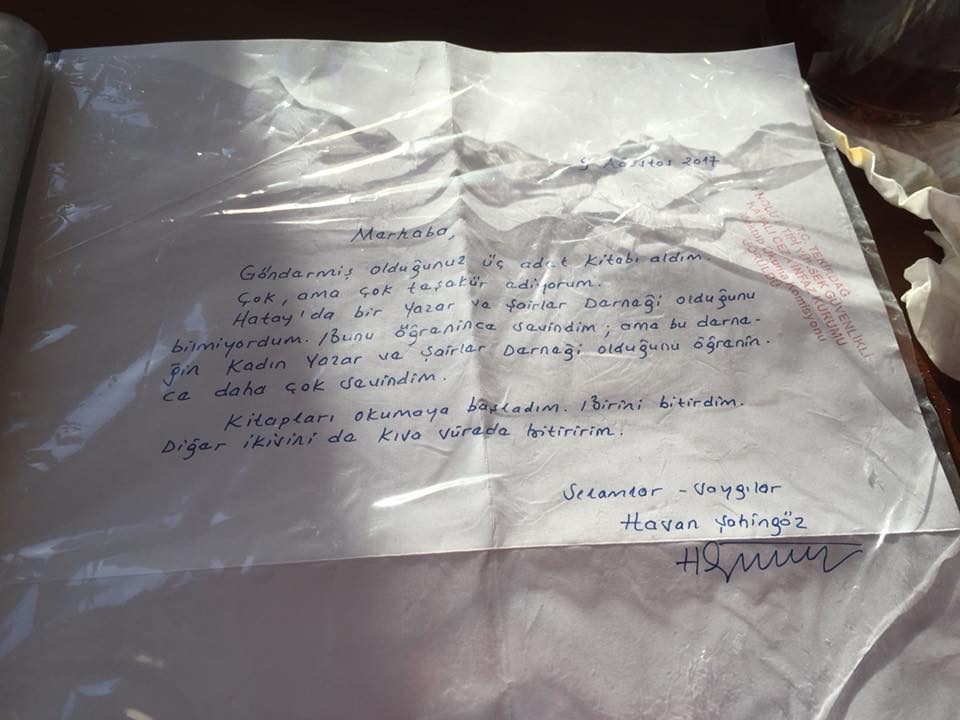 9 Ağustos 2017
Merhaba,
Göndermiş olduğunuz üç adet kitabı aldım.
Çok, ama çok teşekür ediyorum.
Hatay'da bir Yazar ve Şairler Derneği olduğunu
bilmiyordum. Bunu öğrenince sevindim; ama bu derne-
ğin Kadın Yazar ve Şairler Derneği olduğunu öğrenin-
ce daha çok sevindim.
Kitapları okumaya başladım. Birini bitirdim.
Diğer ikisini de kısa sürede bitiririm.
Selamlar - Saygılar
Hasan Şahingöz
T.C. TEKİRDAĞ
NOLU F TİPİ YÜKSEK GÜVENLİKLİ
KAPALI CEZA İNFAZ KURUMU
Mektup Okuma Komisyonu
GÖRÜLDÜ